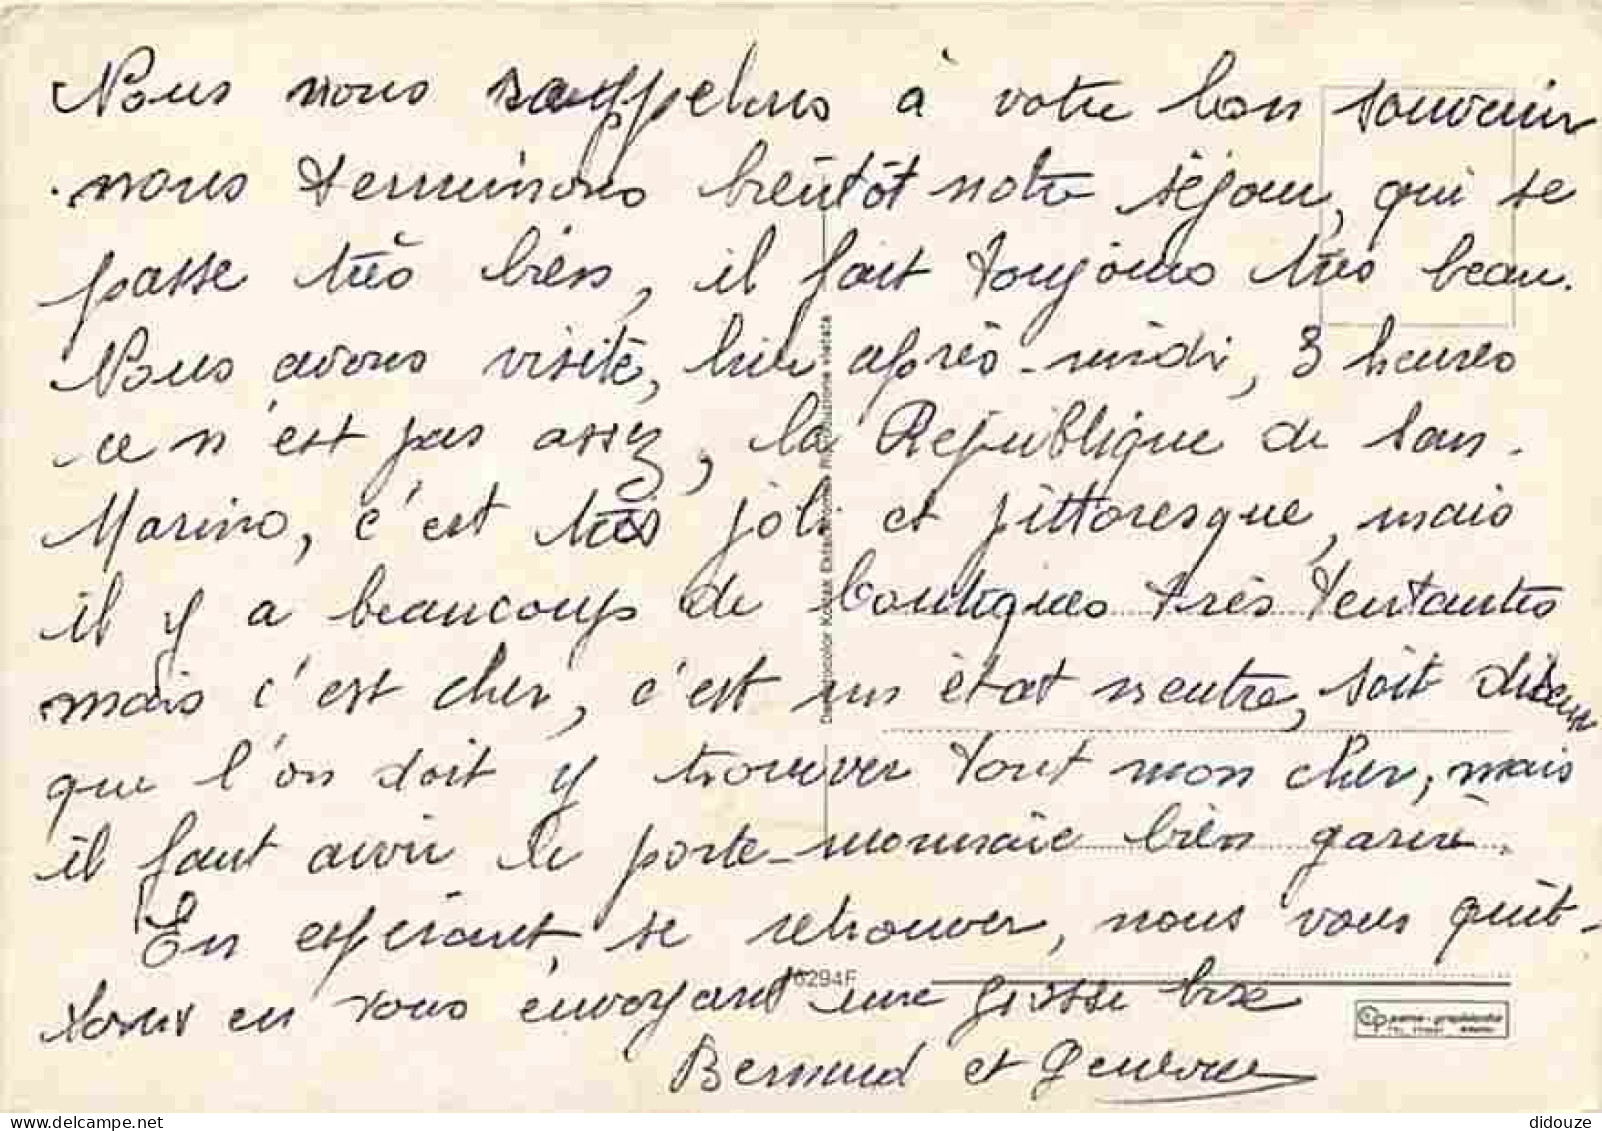 Nous nous rappelons à votre bon souvenir
nous terminons bientôt notre séjour, qui se
passe très bien, il fait toujours très beau.
Nous avons visité, hier après-midi, 3 heures
ce n'est pas assez, la République de San.
Marino, c'est très joli et pittoresque, mais
il y a beaucoup de boutiques très tentantes
mais c'est cher, c'est un état neutre, soit disant
que l'on doit y trouver tout mon cher, mais
il faut avoir le porte-monnaie bien garni.
En espérant, se retrouver, nous vous quit-
tons en vous envoyant une grosse bise
Bernard et Geneviève
6294F
didouze